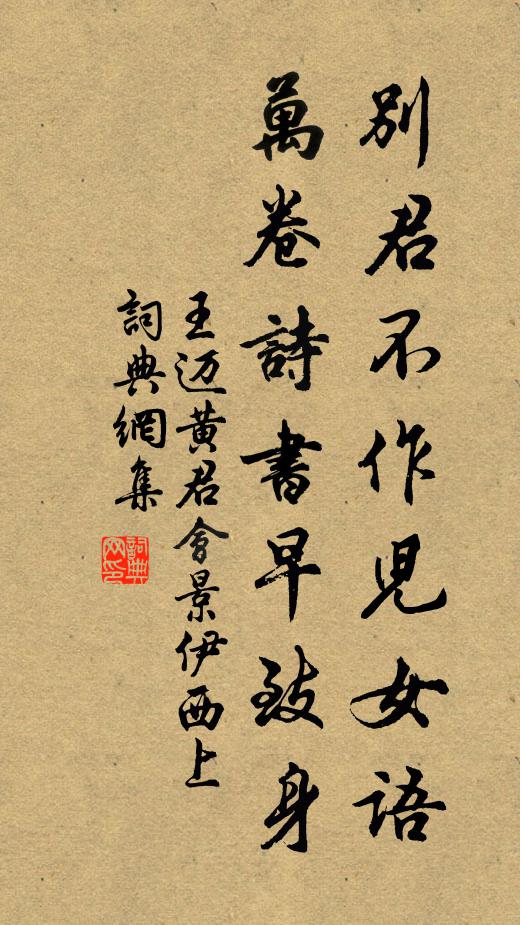 別君不作児女语
萬卷詩書早致身
王迈黄君會景伊西上
詞典網集
詞典網印